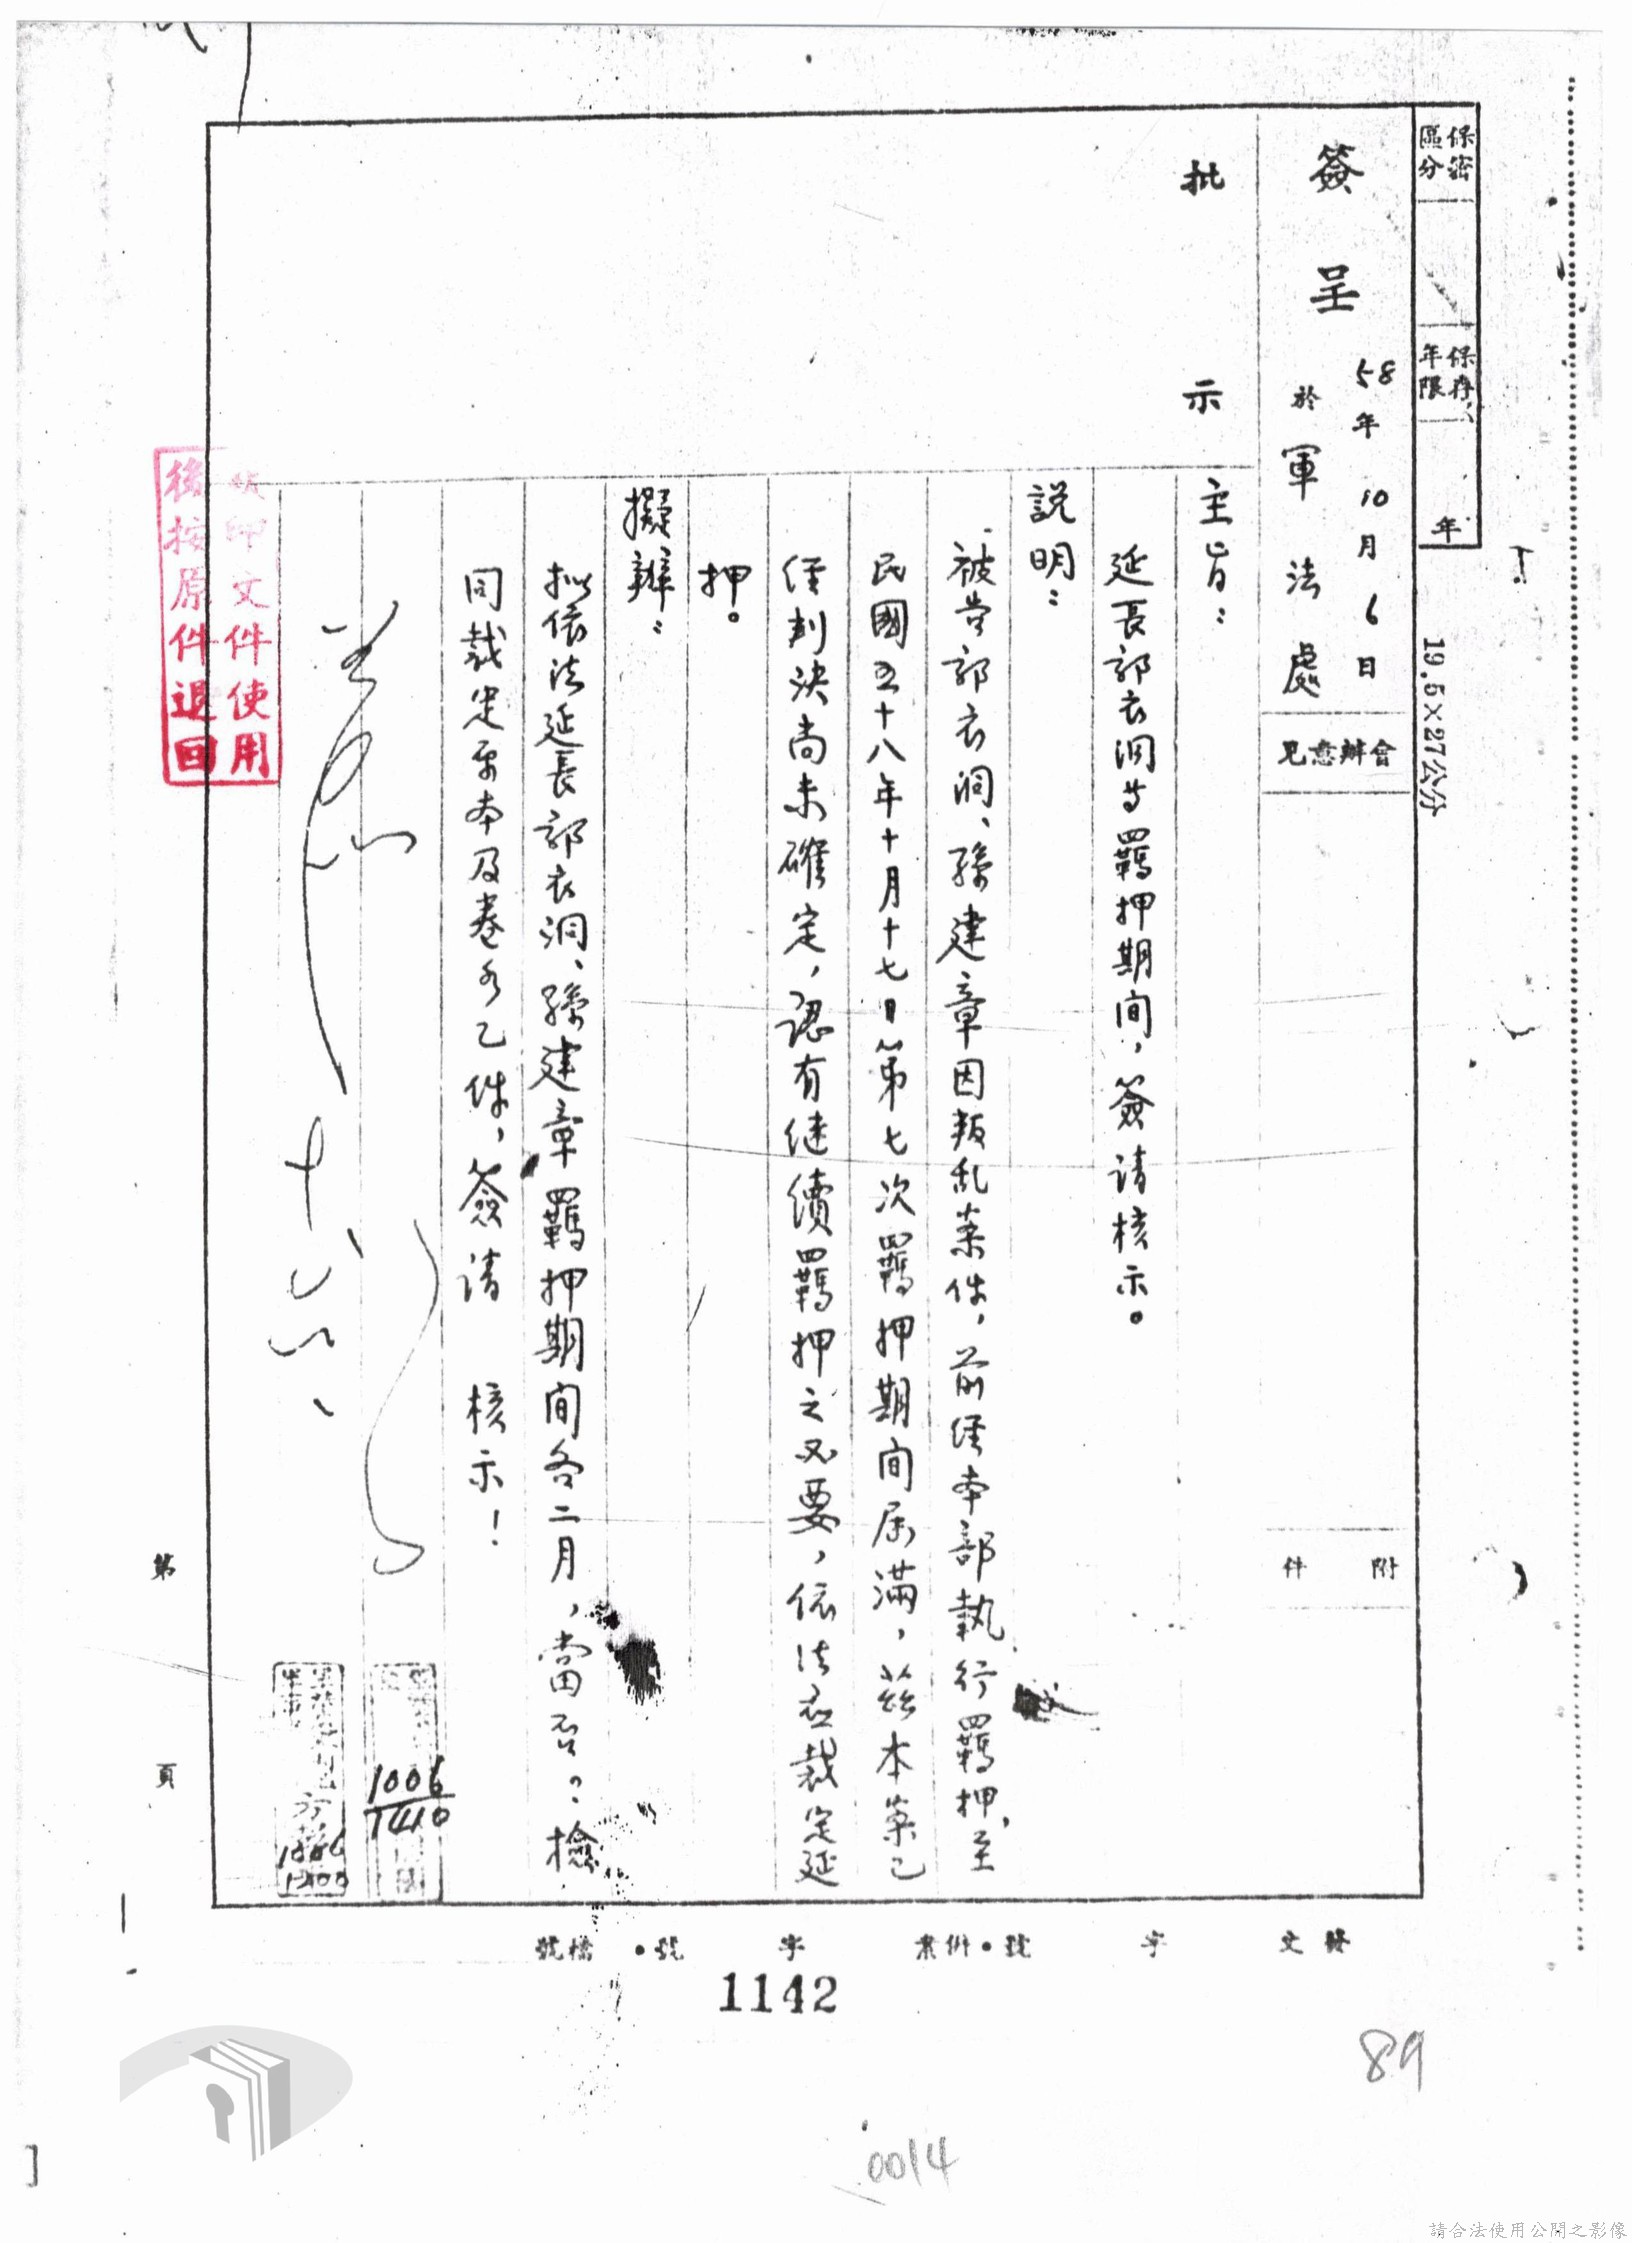 保密
區分
保存
年限
年
19.5×27公分
簽呈
58年10月6日
於軍法處
會辦意見
附件
批示
主旨：
延長郭衣洞等羈押期间，簽请核示。
説明：
被告郭衣洞、孫建章因叛乱案件，前經本部執行羈押，至
民國五十八年十月十七日第七次羈押期间届滿，茲本案已
經判決尚未確定，認有继續羈押之必要，依法应裁定延
押。
擬辦：
拟依法延長郭衣洞、孫建章羈押期间各二月，當否？檢
同裁定原本及卷各乙件，簽请 核示！
1006
1410
1200
文件使用
後按原件退回
第 頁
發文 字 號•併案 字 號•檔號
1142
89
0014
請合法使用公開之影像